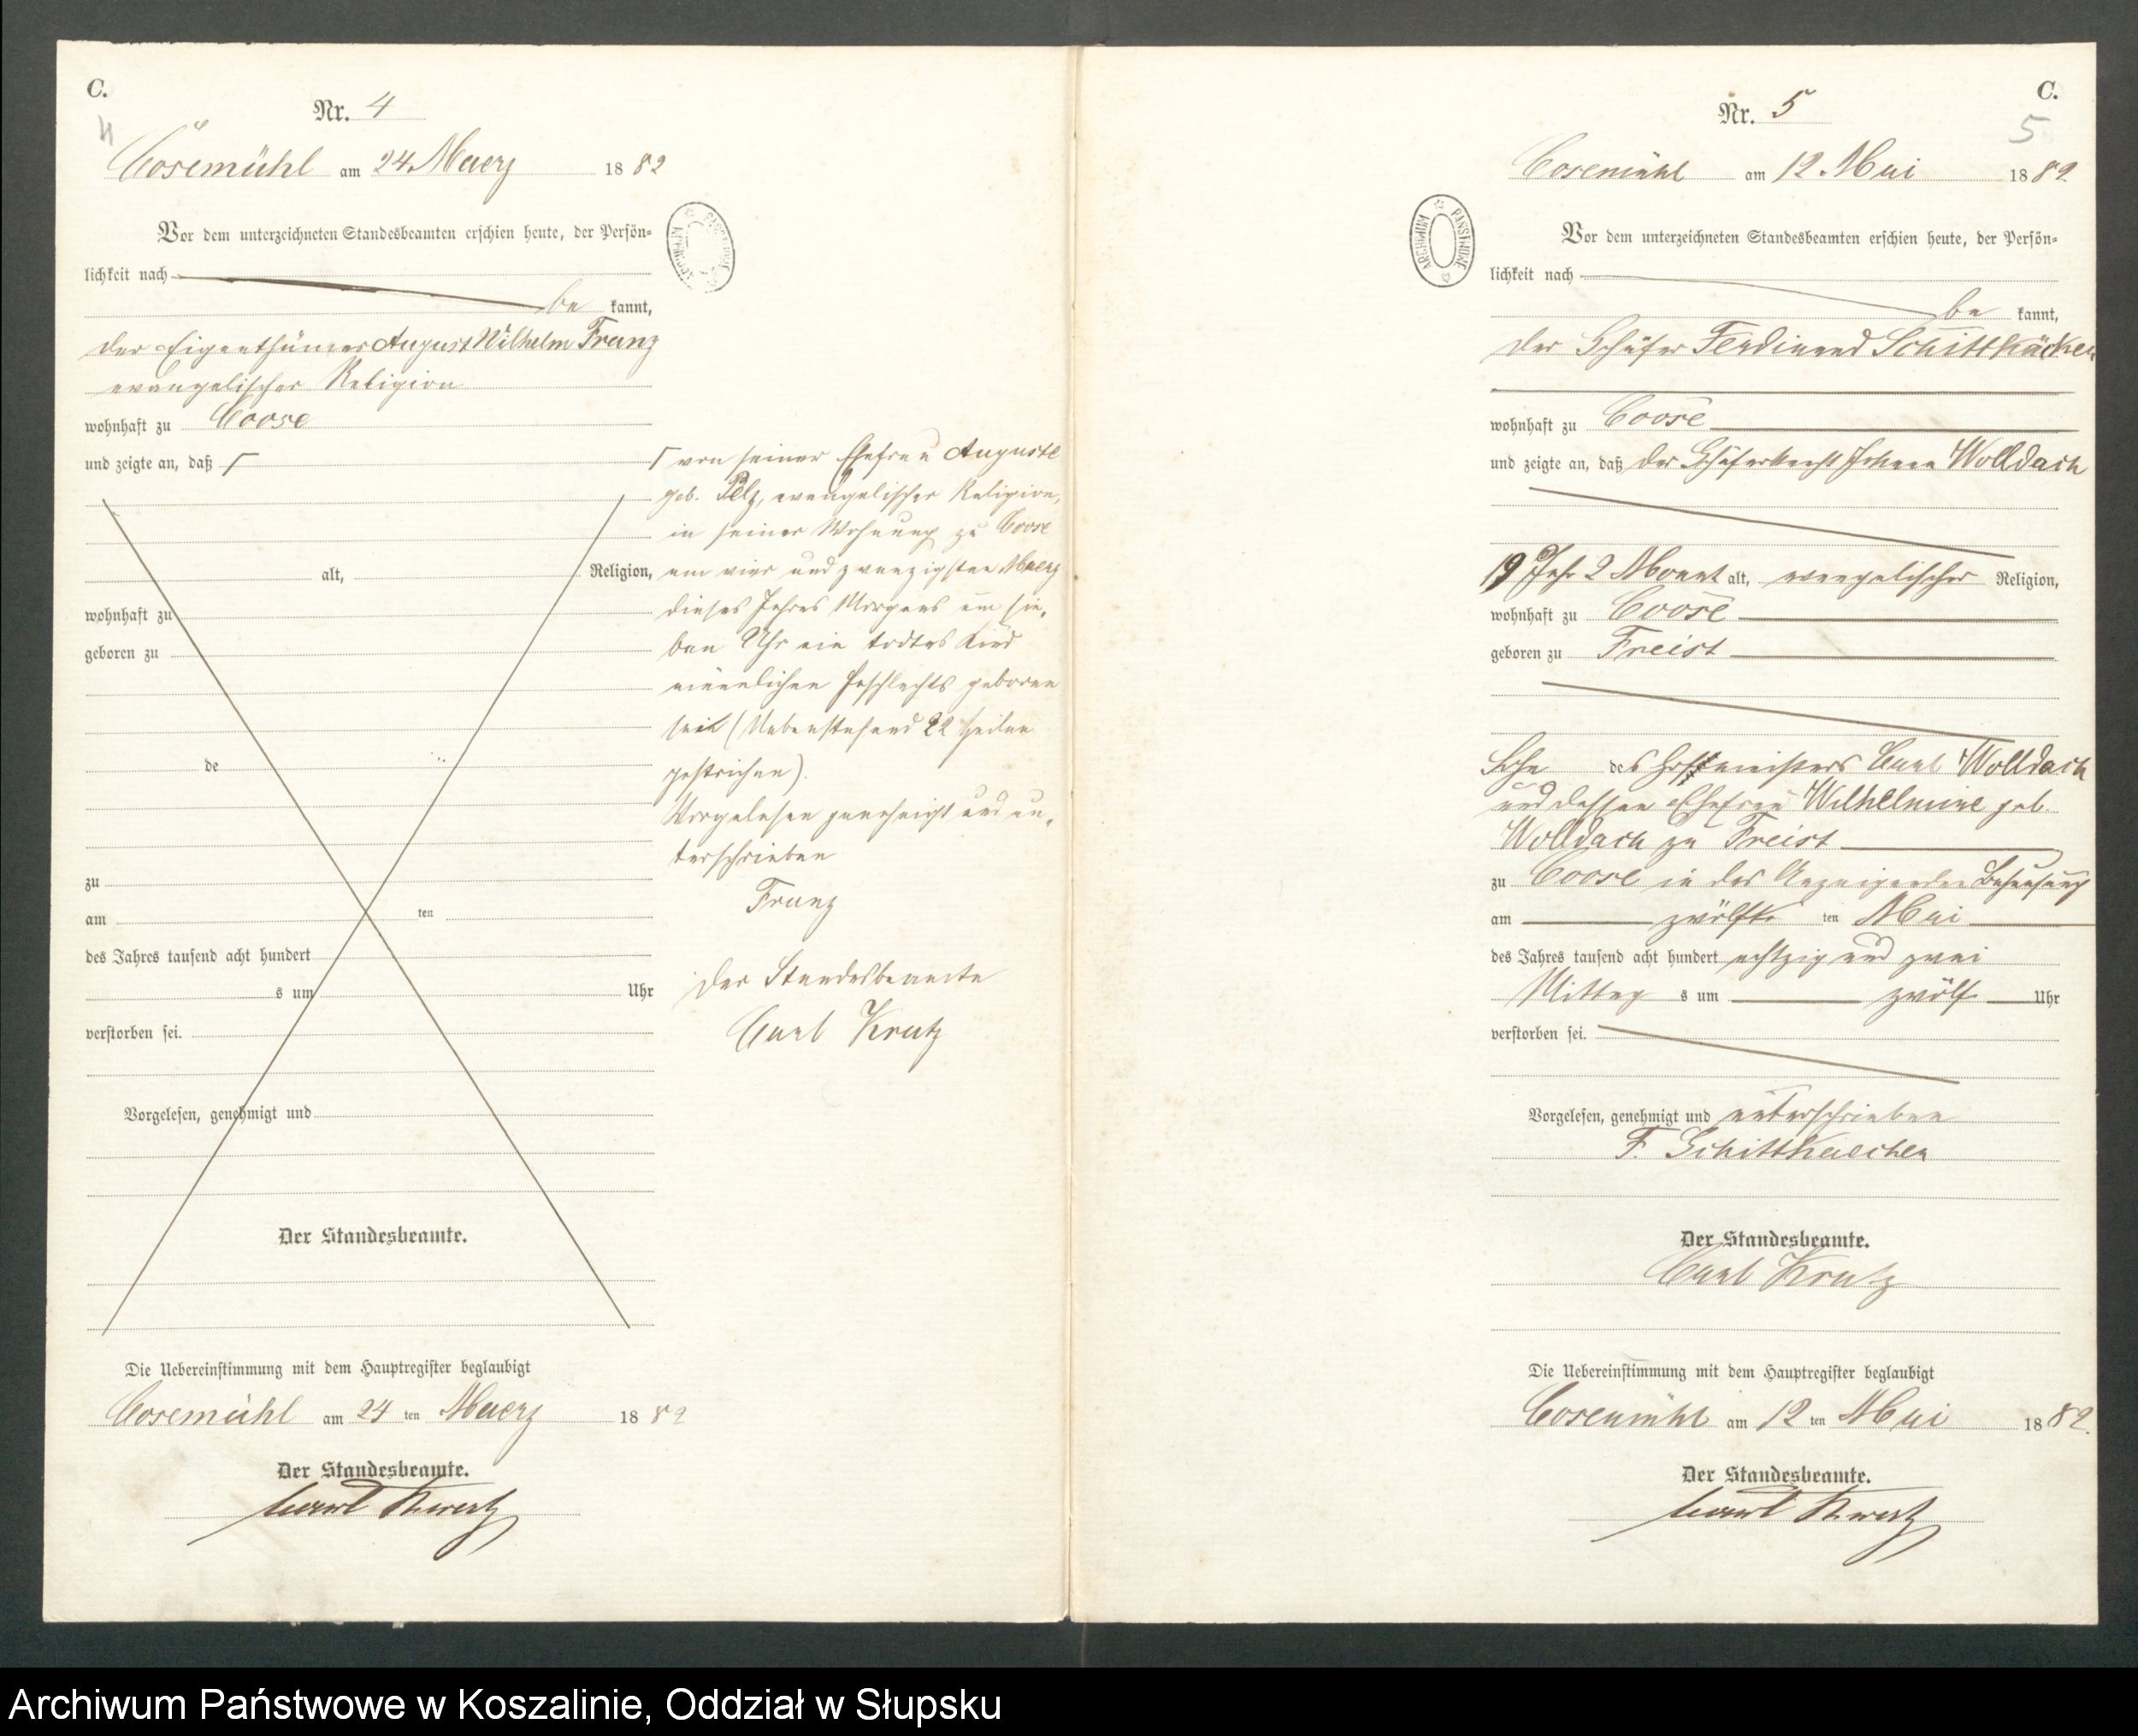 C.
Nr. 4
4
Cösemühl am 24. Maerz 1882
Vor dem unterzeichneten Standesbeamten erschien heute, der Persön-
lichkeit nach
be kannt,
der Eigenthümer August Wilhelm Franz
evangelischer Religion
wohnhaft zu Coose
und zeigte an, daß
alt, Religion,
wohnhaft zu
geboren zu
de
zu
am ten
des Jahres tausend acht hundert
s um Uhr
verstorben sei.
Vorgelesen, genehmigt und
Der Standesbeamte.
von seiner Ehefrau Auguste
geb. Pelz, evangelischer Religion,
in seiner Wohnung zu Coose
am vier und zwanzigsten Maerz
dieses Jahres Morgens um sie-
ben Uhr ein todtes Kind
männlichen Geschlechts geboren
sei (Nebenstehend 22 Zeilen
gestrichen).
Vorgelesen genehmigt und un-
terschrieben
Franz
Der Standesbeamte
Carl Kratz
Die Uebereinstimmung mit dem Hauptregister beglaubigt
Cosemühl am 24 ten Maerz 1882
Der Standesbeamte.
Carl Kratz
ARCHIWUM PAŃSTWOWE
C.
Nr. 5
5
Cosemühl am 12. Mai 1882.
Vor dem unterzeichneten Standesbeamten erschien heute, der Persön-
lichkeit nach
be kannt,
der Schäfer Ferdinand Schittkäcken
wohnhaft zu Coose
und zeigte an, daß der Schäferknecht Johann Wolldach
19 Jahr 2 Monat alt, evangelischer Religion,
wohnhaft zu Coose
geboren zu Freist
Sohn des Hofmeisters Carl Wolldach
und dessen Ehefrau Wilhelmine geb.
Wolldach zu Freist
zu Coose in des Anzeigenden Behausung
am zwölfte ten Mai
des Jahres tausend acht hundert achtzig und zwei
Mittag s um zwölf Uhr
verstorben sei.
Vorgelesen, genehmigt und unterschrieben
F. Schittkaecken
Der Standesbeamte.
Carl Kratz
Die Uebereinstimmung mit dem Hauptregister beglaubigt
Cosemühl am 12 ten Mai 1882.
Der Standesbeamte.
Carl Kratz
ARCHIWUM PAŃSTWOWE
Archiwum Państwowe w Koszalinie, Oddział w Słupsku